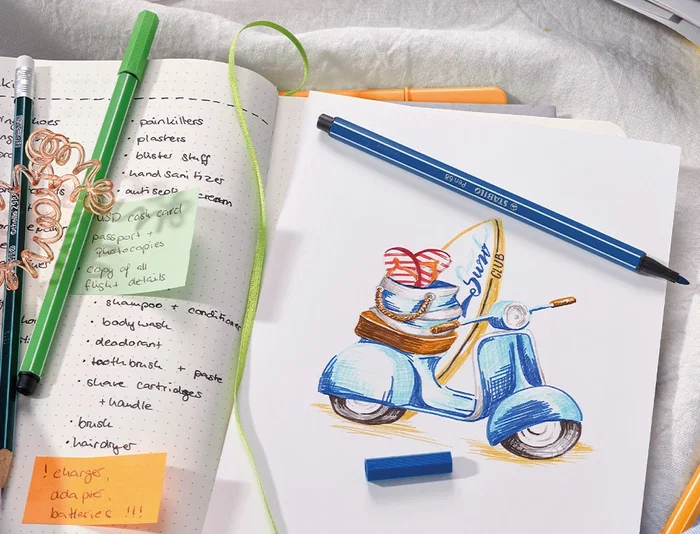 painkillers
plasters
blister stuff
hand sanitizer
antiseptic cream
USD cash card
passport +
photocopies
copy of all
flight details
shampoo + conditioner
bodywash
deodorant
toothbrush + paste
shave cartridges
+ handle
brush
hairdryer
! charger,
adapter,
batteries !!!
STABILO Pen 68
Surf
CLUB